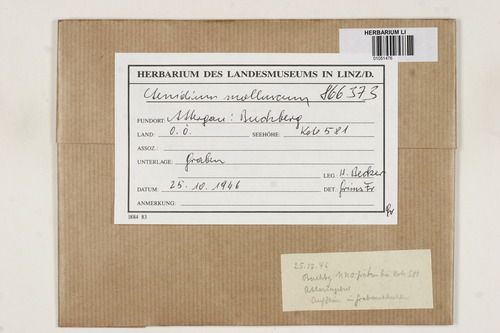 HERBARIUM LI
01051476
HERBARIUM DES LANDESMUSEUMS IN LINZ/D.
Ctenidium molluscum 866373
FUNDORT: Attergau: Buchberg
LAND: O.Ö. SEEHÖHE: Kote 581
ASSOZ.:
UNTERLAGE: Graben
LEG. H. Becker
DATUM: 25.10.1946 DET. Grims Fr
ANMERKUNG:
1884 83
Gr
25.10.46
Kote 581